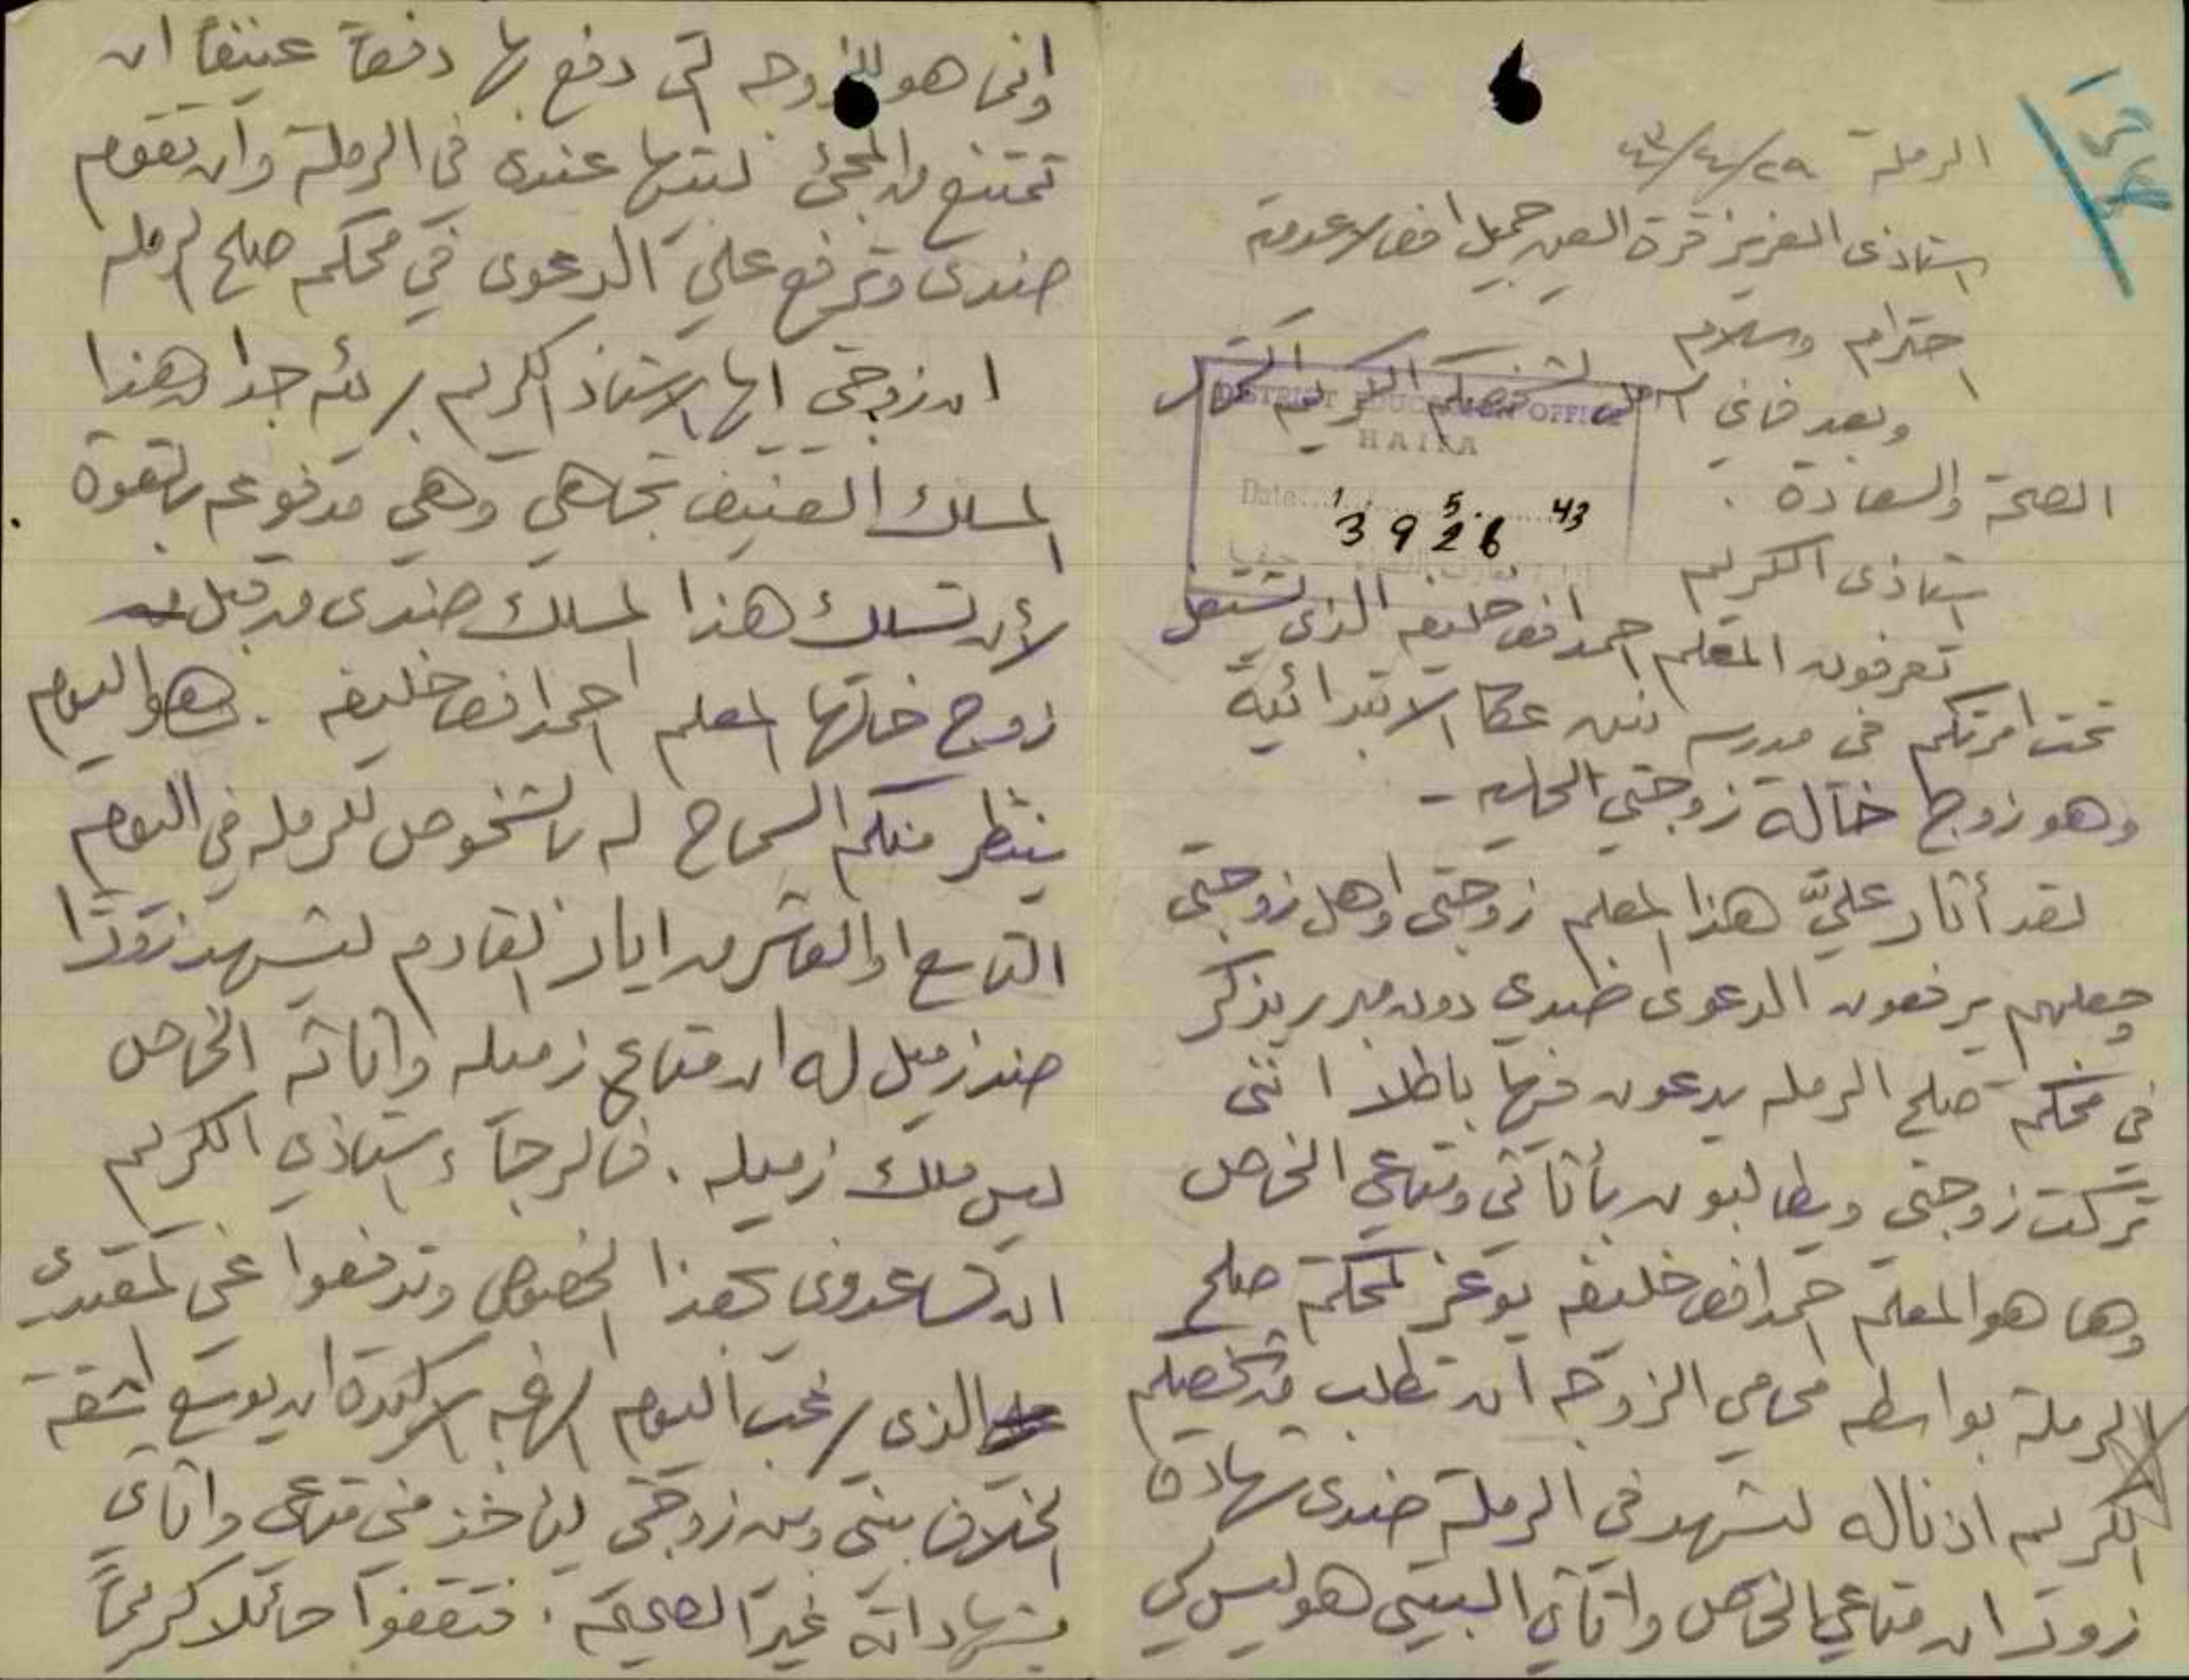 الرملة ٢٩/٤/٤٣
استاذي العزيز قرة العين جميل افندي
احترام وسلام
وبعد فاني لشخصكم الكريم
الصحة والسعادة .
DISTRICT EDUCATION OFFICE
HAIFA
Date: 1 5. 43
3926
استاذي الكريم
تعرفون المعلم احمد افندي خليفه الذي يشتغل
تحت امرتكم في مدرسة بنين عكا الابتدائية
وهو زوج خالة زوجتي الحاليه -
لقد أثار عليَّ هذا المعلم زوجتي واهل زوجتي
وجعلهم يرفعون الدعوى ضدي دون مبرر يذكر
في محكمة صلح الرمله يدعون فيها باطلا انني
تركت زوجتي ويطالبون بأثاثي ومتاعي الخاص
وها هو المعلم احمد افندي خليفه يوعز لمحكمة صلح
الرملة بواسطه محامي الزوجه ان تطلب من شخصكم
الكريم اذنا له ليشهد في الرملة ضدي شهادة
زور ان متاعي الخاص واثاثي البيتي هو ليس لي
وانما هو للزوجه التي دفع بها دفعاً عنيفاً ان
تمتنع من المجئ لبيتها عندي في الرملة وان تقوم
ضدي وترفع علي الدعوى في محكمة صلح الرمله
ان زوجتي ايها الاستاذ الكريم بريئه جدا من هذا
المسلك العنيف تجاهي وهي مدفوعه بالقوة
لأن تسلك هذا المسلك ضدي من قبل
زوج خالتها المعلم احمد افندي خليفه . وهو اليوم
ينتظر منكم السماح له بالشخوص للرمله في اليوم
التاسع او العاشر من ايار القادم ليشهد زورًا
ضد زميل له ان متاع زميله واثاثه الخاص
ليس ملك زميله . فالرجاء استاذي الكريم
ان تساعدوني بهذا الخصوص وتدفعوا عني
الذي يرغب اليوم الرغبه الاكيدة ان يوسع شقة
الخلاف بيني وبين زوجتي ليأخذ مني متاعي واثاثي
بشهاداته غير الصحيحة . فتقفوا حائلا كريماً